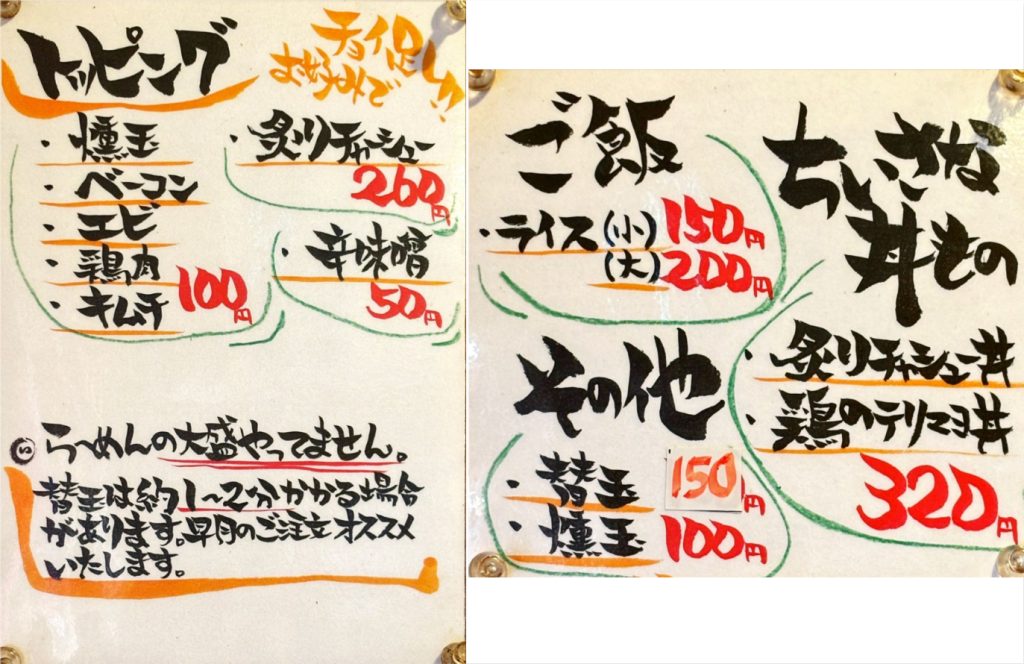 トッピング
チョイ足し!!
お好みで
・燻玉
・ベーコン
・エビ
・鶏肉
・キムチ
100円
・炙りチャーシュー
260円
・辛味噌
50円
らーめんの大盛やってません。
替玉は約1〜2分かかる場合
があります。早目のご注文オススメ
いたします。
ご飯
・ライス(小)150円
(大)200円
その他
・替玉 150円
・燻玉 100円
ちいさな
丼もの
・炙りチャーシュー丼
・鶏のテリマヨ丼
320円